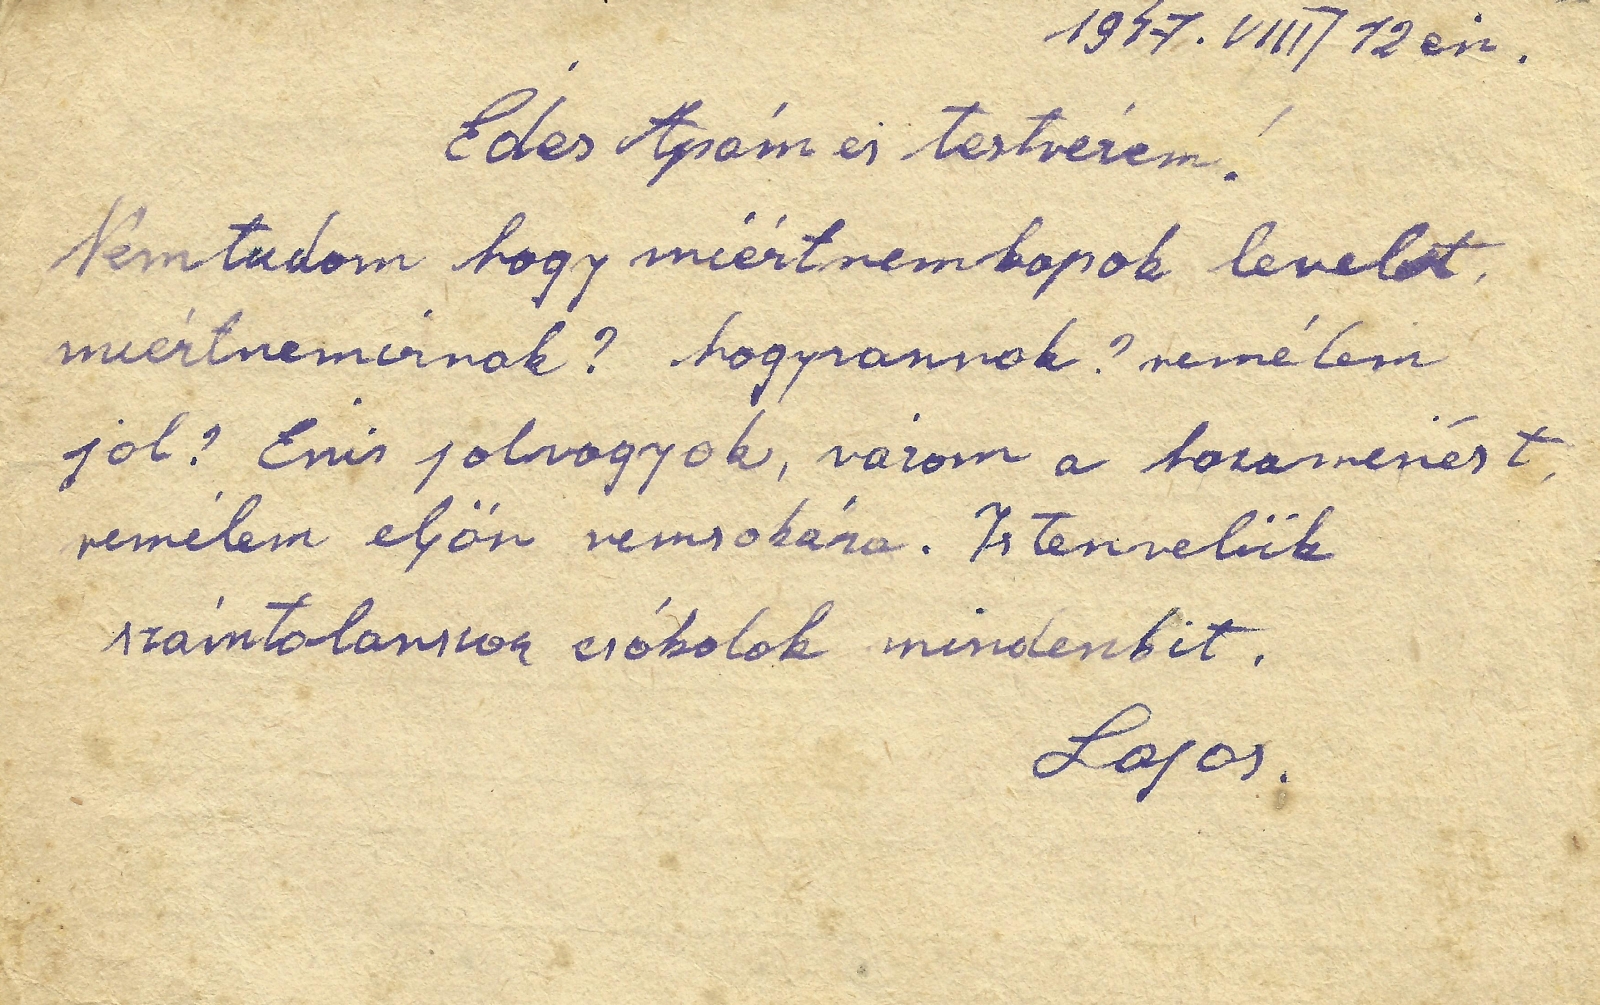 1947. VIII/12 én.
Édes Apám és testvérem!
Nemtudom hogy miértnemkapok levelet,
miértnemirnak? hogyvannak? remélem
jol? Énis jolvagyok, várom a hazamenést,
remélem eljön nemsokára. Istenvelük
számtalanszor csókolok mindenkit.
Lajos.